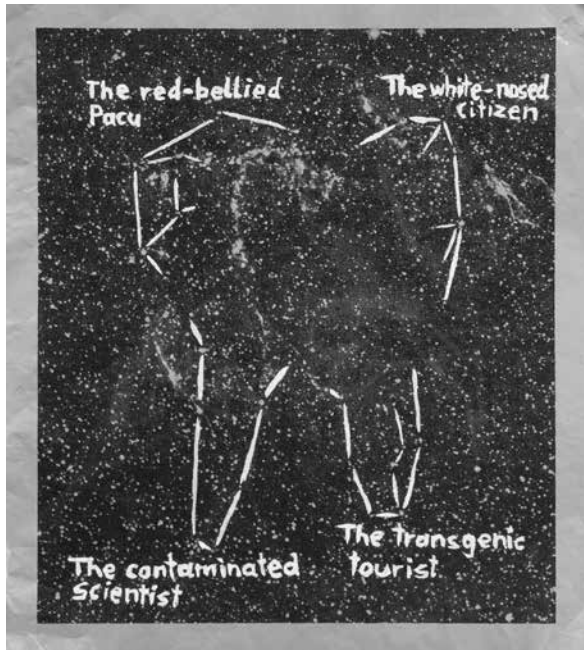 The red-bellied
Pacu
The white-nosed
citizen
The contaminated
scientist
The transgenic
tourist